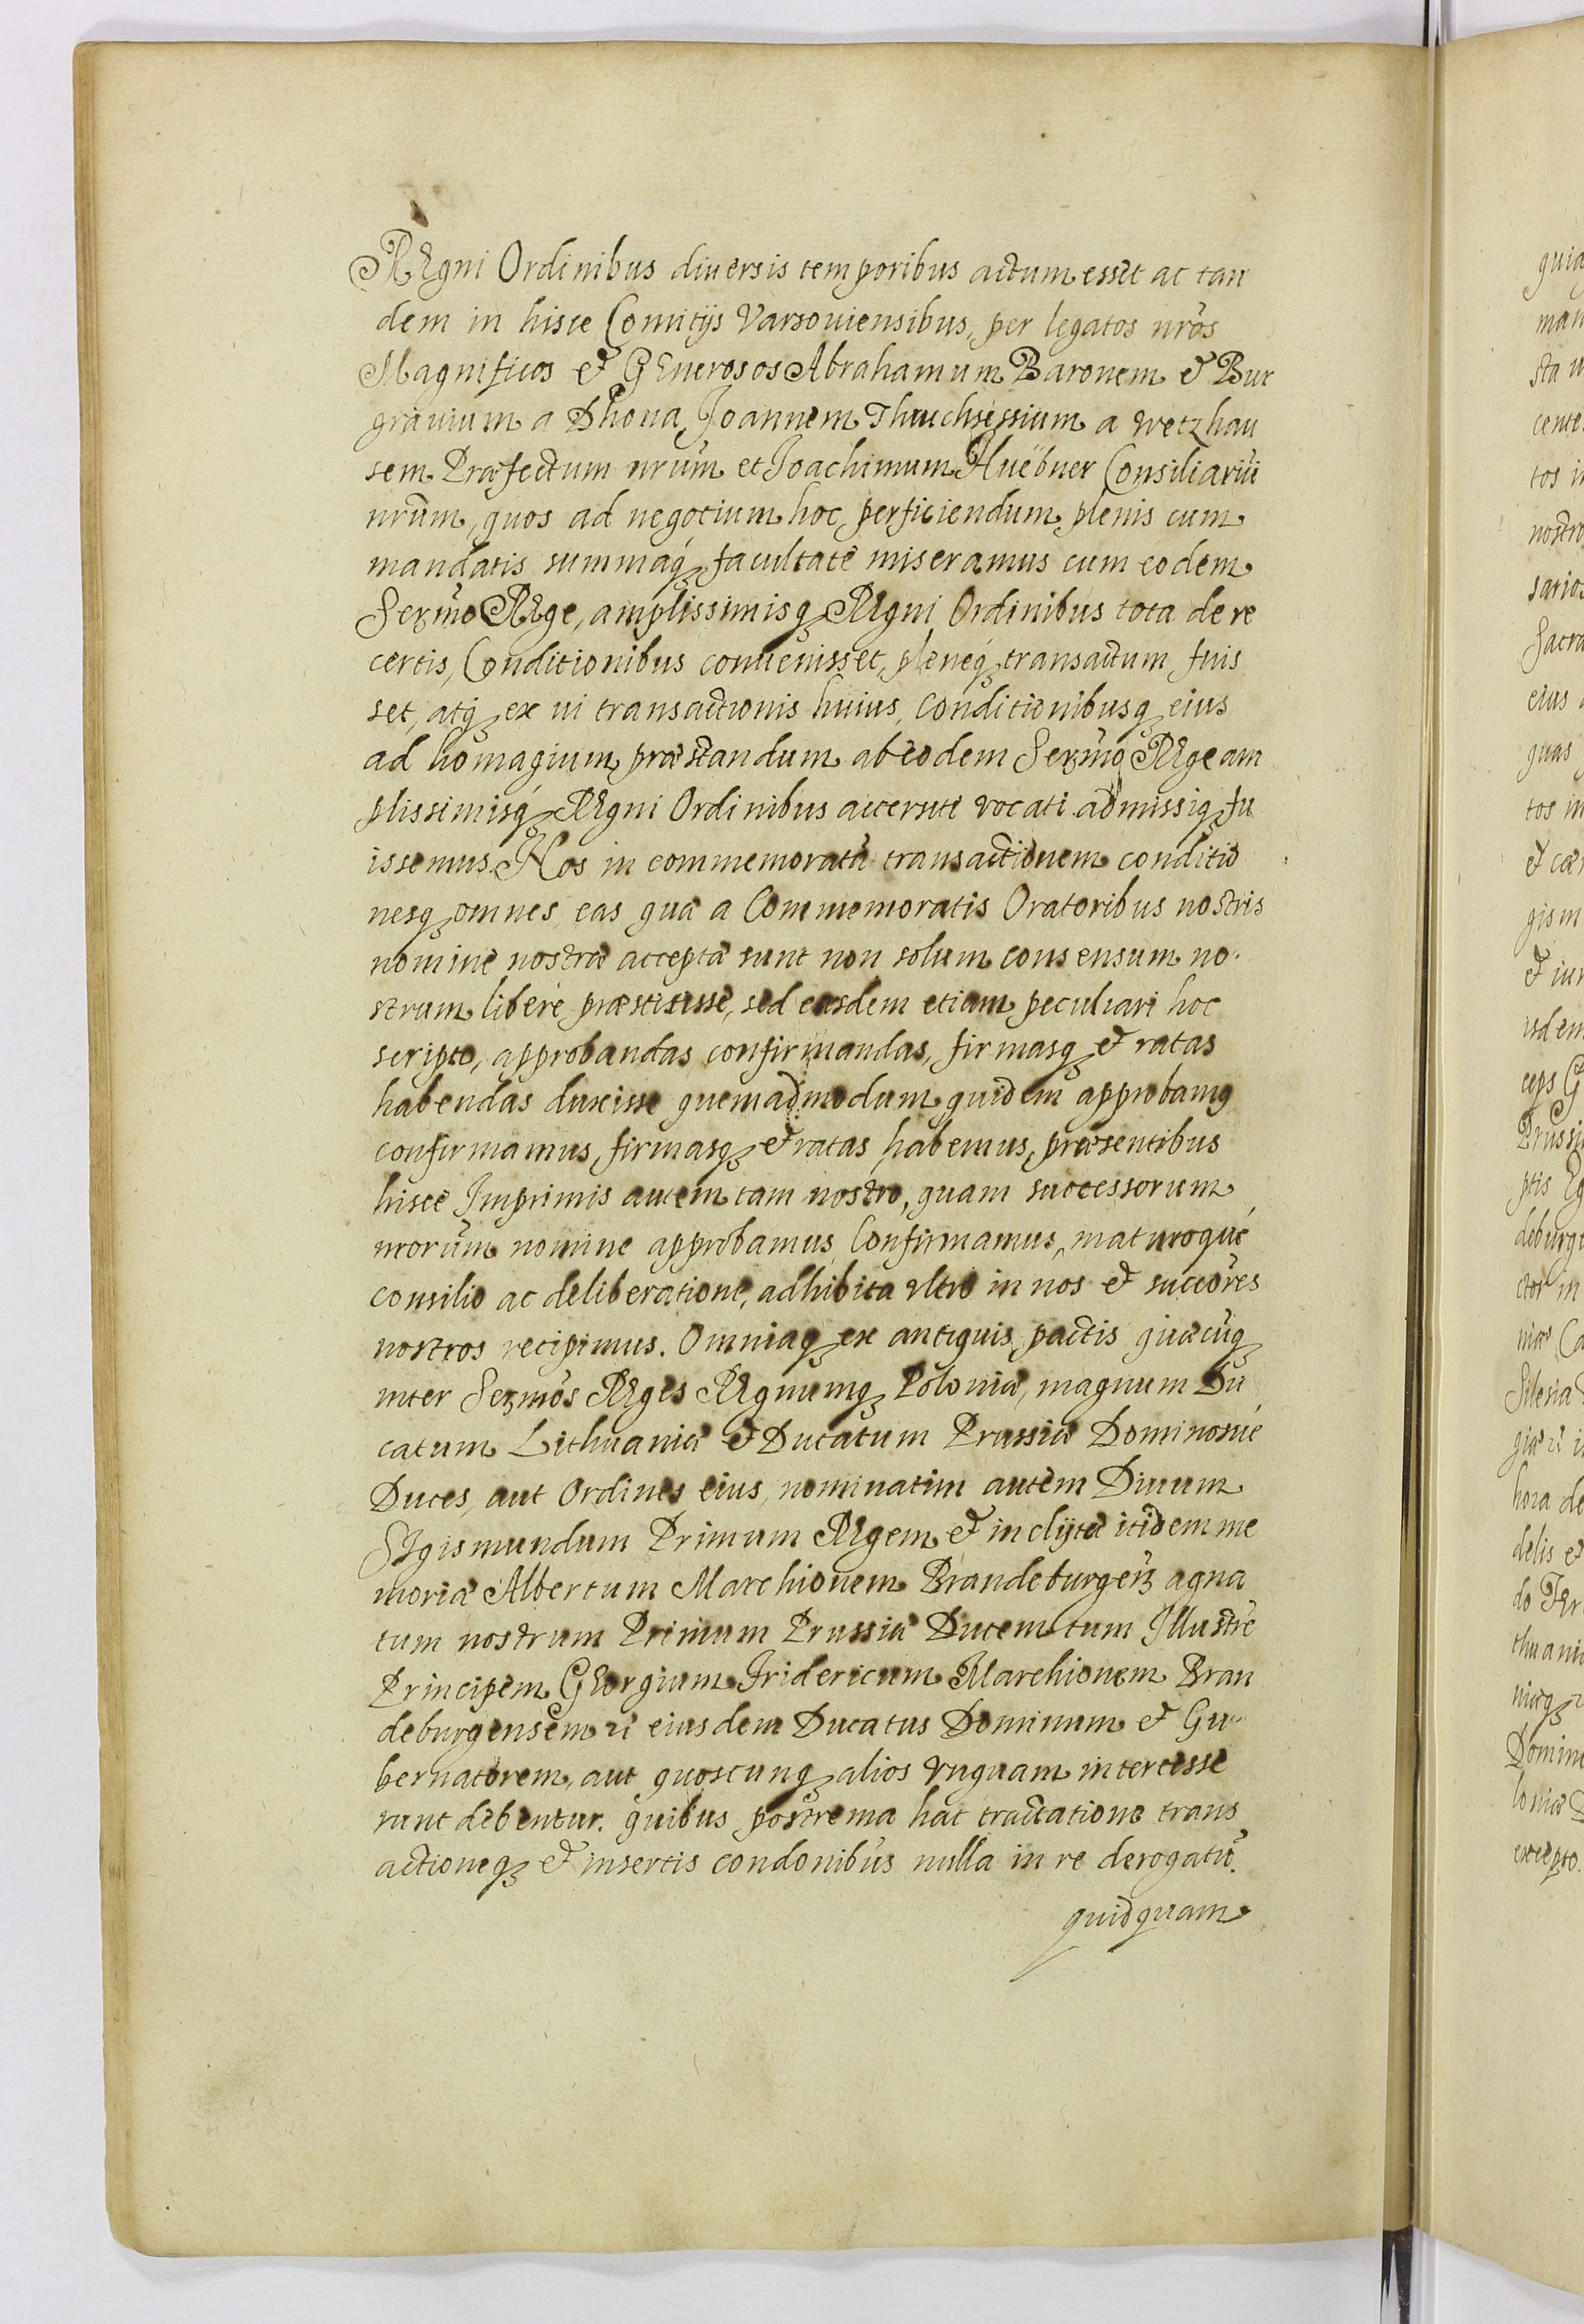 REgni Ordinibus diuersis temporibus actum esset ac tan
dem in hisce Comitijs Varsouiensibus, per legatos nrõs
Magnificos et GEnerosos Abrahamum Baronem et Bur
grauium a Dhona, Joannem Thruchsessium a wetzhau
sem Præfectum nrũm et Joachimum Huëbner Consiliariũ
nrũm, quos ad negotium hoc perficiendum plenis cum
mandatis summaq́ꝫ facultate miseramus cum eodem
Serm̃o REge, amplissimisqꝫ REgni Ordinibus tota de re
certis, Conditionibus conuenisset, pleneq́ꝫ transactum fuis
set, atqꝫ ex ui transactionis huius, Conditionibusqꝫ eius
ad homagium præstandum ab eodem Serm̃o REge am
plissimisq́ꝫ REgni Ordinibus accersiti vocati admissiqꝫ fu
issemus. Nos in commemoratã transactionem conditio
nesqꝫ omnes eas quæ a Commemoratis Oratoribus nostris
nomine nostra acceptæ sunt non solum consensum no-
strum libere præstitisse, sed easdem etiam peculiari hoc
scripto, approbandas confirmandas, firmasqꝫ et ratas
habendas duxisse quemadmodum quidem approbamꝰ
confirmamus, firmasqꝫ et ratas habemus, præsentibus
hisce Imprimis autem tam nostro, quam successorum
nrorũm nomine approbamus, Confirmamus, maturoque
consilio ac deliberatione, adhibita vltro in nos et succõres
nostros recipimus. Omniaqꝫ ex antiquis pactis quæcũqꝫ
inter Serm̃os REges REgnumqꝫ Poloniæ, magnum Du
catum Lithuaniæ et Ducatum Prussiæ Dominosue
Duces, aut Ordines eius, nominatim autem Diuum
SIgismundum Primum REgem et inclijtæ itidem me
moriæ Albertum Marchionem Brandeburgeñ agna
tum nostrum Primum Prussiæ Ducem tum Illustrẽ
Principem GEorgium Fridericum Marchionem Bran
deburgensem ꝛc̃ eiusdem Ducatus Dominum et Gu-
bernatorem, aut quoscunqꝫ alios vnquam intercesse
runt debentur. quibus postrema hac tractatione trans
actioneqꝫ et insertis condonibus nulla in re derogatũ.
quidquam